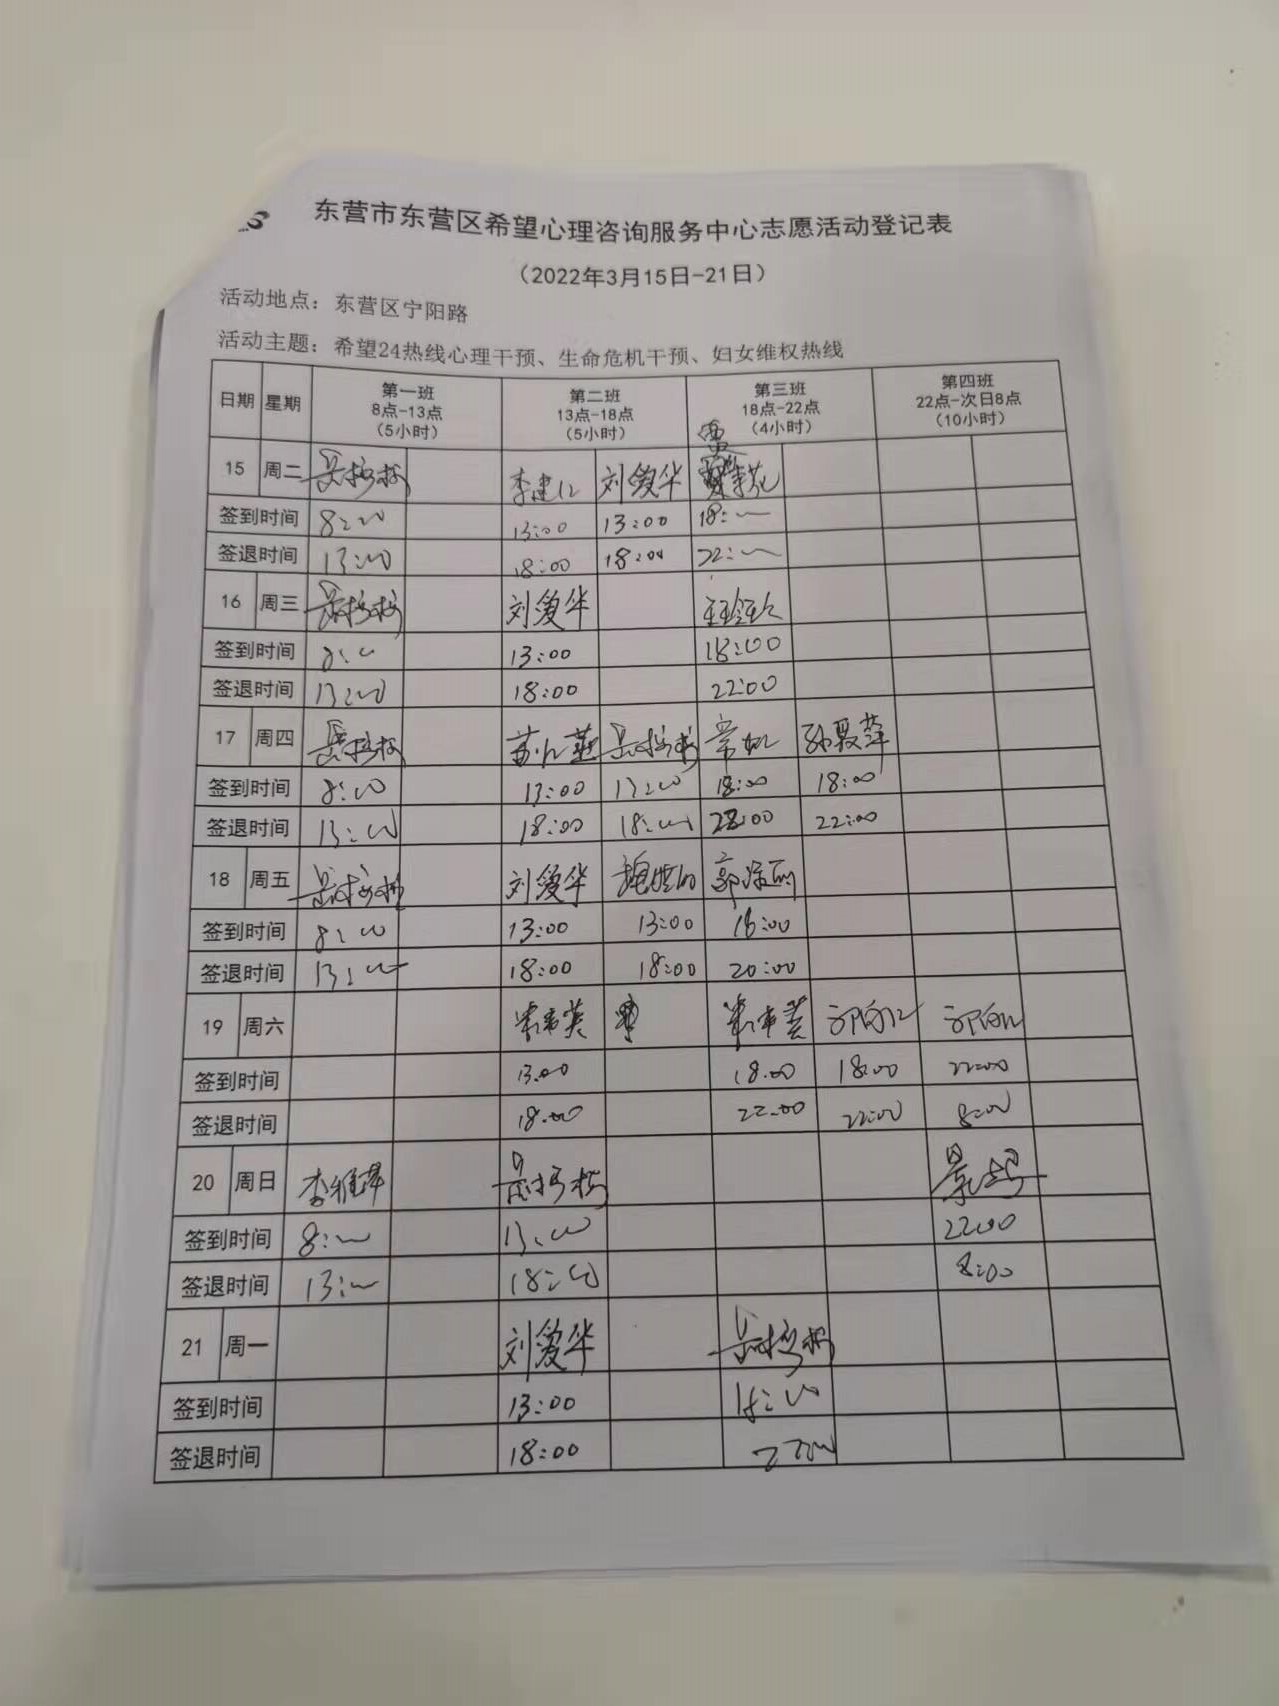 东营市东营区希望心理咨询服务中心志愿活动登记表
（2022年3月15日-21日）
活动地点：东营区宁阳路
活动主题：希望24热线心理干预、生命危机干预、妇女维权热线
日期 星期 第一班 8点-13点 （5小时） 第二班 13点-18点 （5小时） 第三班 18点-22点 （4小时） 第四班 22点-次日8点 （10小时）
15 周二 李建江 刘爱华
签到时间 8:00 13:00 13:00 18:
签退时间 13:00 18:00 18:00 22:
16 周三 刘爱华
签到时间 8:00 13:00 18:00
签退时间 13:00 18:00 22:00
17 周四
签到时间 8:00 13:00 13:00 18:00 18:00
签退时间 13:00 18:00 18:00 22:00 22:00
18 周五 刘爱华
签到时间 8:00 13:00 13:00 18:00
签退时间 13:00 18:00 18:00 20:00
19 周六
签到时间 13:00 18:00 18:00 22:00
签退时间 18:00 22:00 22:00 8:00
20 周日 李雅萍
签到时间 8: 13:00 22:00
签退时间 13: 18:00 8:00
21 周一 刘爱华
签到时间 13:00 18:00
签退时间 18:00 22:00